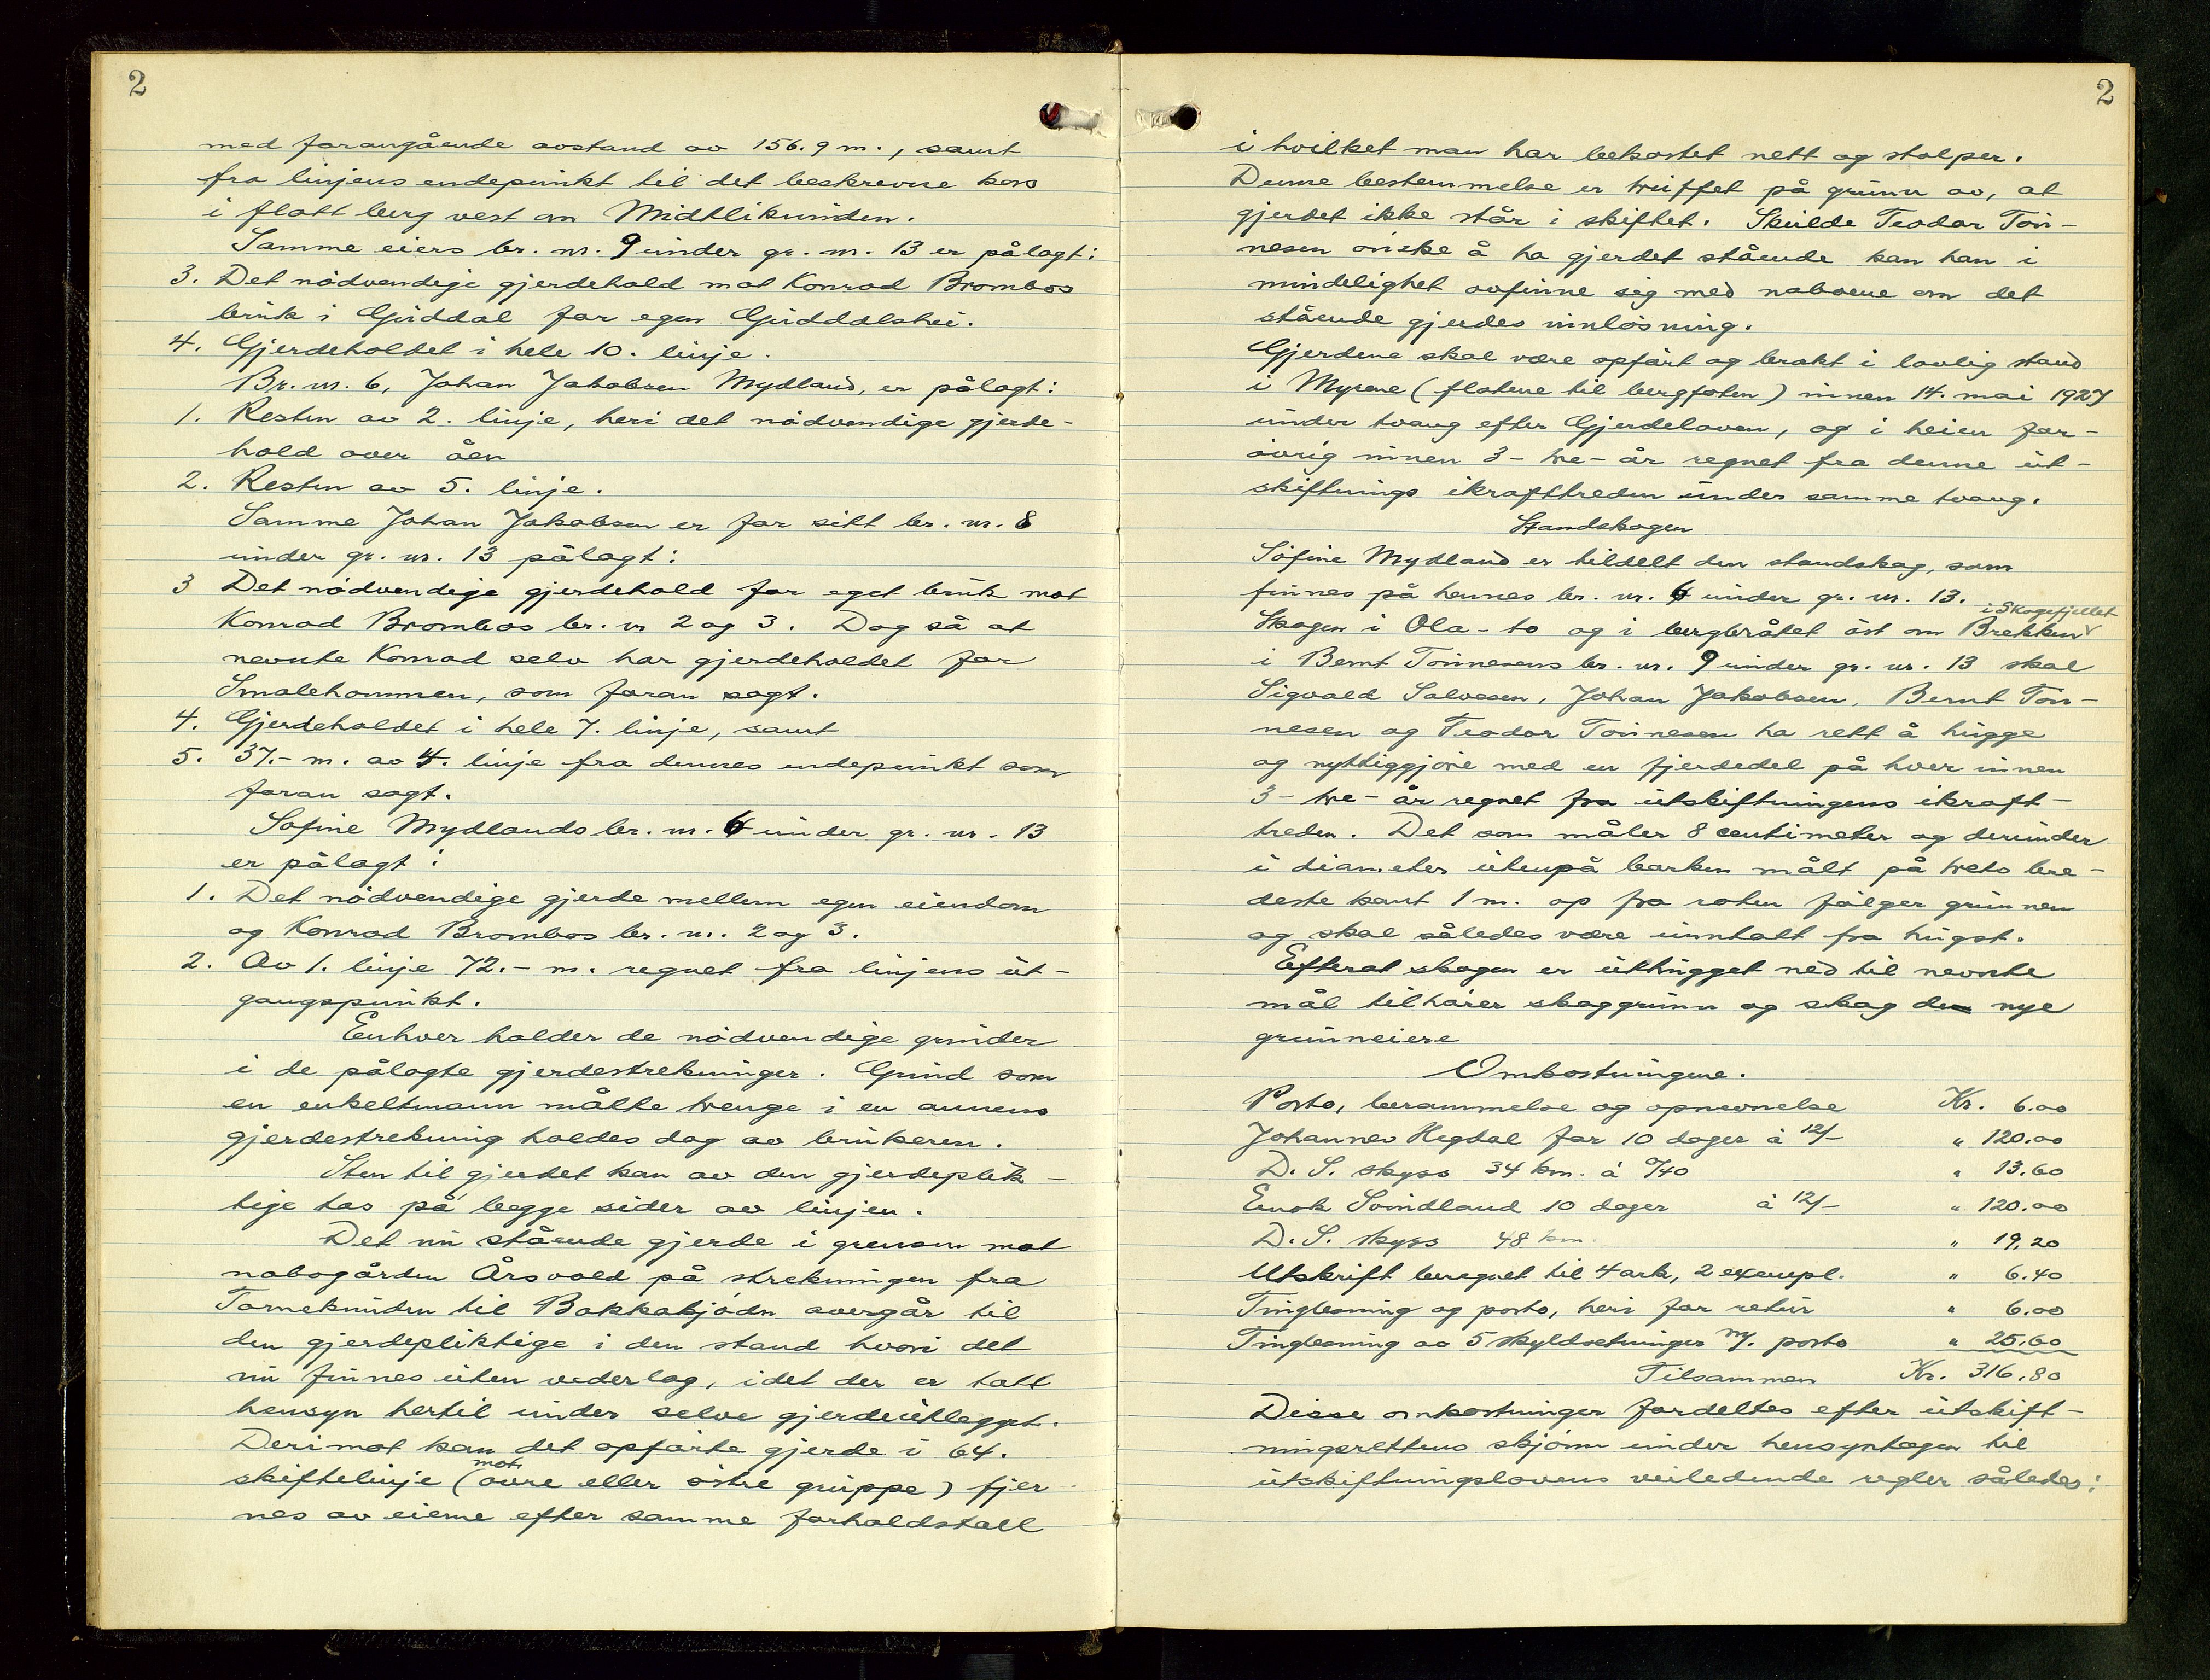 2
med forangående avstand av 156.9 m., samt
fra linjens endepunkt til det beskrevne kors
i flatt berg vest om Midtliknuden.
Samme eiers br. nr. 9 under gr. nr. 13 er pålagt:
3. Det nödvendige gjerdehold mot Konrad Brombos
bruk i Gviddal for egen Gviddalshei.
4. Gjerdeholdet i hele 10. linje.
Br. nr. 6, Johan Jakobsen Mydland, er pålagt:
1. Resten av 2. linje, heri det nödvendige gjerde-
hold over åen
2. Resten av 5. linje.
Samme Johan Jakobsen er for sitt br. nr. 8
under gr. nr. 13 pålagt:
3 Det nödvendige gjerdehold for eget bruk mot
Konrad Brombos br. nr 2 og 3. Dog så at
nevnte Konrad selv har gjerdeholdet for
Smalehommen, som foran sagt.
4. Gjerdeholdet i hele 7. linje, samt
5. 37.- m. av 4. linje fra dennes endepunkt som
foran sagt.
Sofine Mydlands br. nr. 6 under gr. nr. 13
er pålagt:
1. Det nödvendige gjerde mellem egen eiendom
og Konrad Brombos br. nr. 2 og 3.
2. Av 1. linje 72.- m. regnet fra linjens ut-
gangspunkt.
Enhver holder de nödvendige grinder
i de pålagte gjerdestrekninger. Grind som
en enkeltmann måtte trenge i en annens
gjerdestrekning holdes dog av brukeren.
Sten til gjerdet kan av den gjerdeplik-
tige tas på begge sider av linjen.
Det nu stående gjerde i grensen mot
nabogården Årsvold på strekningen fra
Torneknuden til Bakkakjödn overgår til
den gjerdepliktige i den stand hvori det
nu finnes uten vederlag, idet der er tatt
hensyn hertil under selve gjerdeutlegget.
Derimot kan det opförte gjerde i 64.
skiftelinje (mot övre eller östre gruppe) fjer-
nes av eierne efter samme forholdstall
2
i hvilket man har bekostet nett og stolper.
Denne bestemmelse er truffet på grunn av, at
gjerdet ikke står i skiftet. Skulde Teodor Tön-
nesen önske å ha gjerdet stående kan han i
mindelighet avfinne sig med naboene om det
stående gjerdes innlösning.
Gjerdene skal være opfört og brakt i lovlig stand
i Myrene (flatene til bergfoten) innen 14. mai 1927
under tvang efter Gjerdeloven, og i heien for-
övrig innen 3 - tre - år regnet fra denne ut-
skiftnings ikrafttreden under samme tvang.
Standskogen
Sofine Mydland er tildelt den standskog, som
finnes på hennes br. nr. 6 under gr. nr. 13.
Skogen i Ola-to og i bergbråtet öst om Brekken i Skogefjellet
i Bernt Tönnesens br. nr. 9 under gr. nr. 13 skal
Sigvald Salvesen, Johan Jakobsen, Bernt Tön-
nesen og Teodor Tönnesen ha rett å hugge
og nyttiggjöre med en fjerdedel på hver innen
3 - tre - år regnet fra utskiftningens ikraft-
treden. Det som måler 8 centimeter og derunder
i diameter utenpå barken målt på trets bre-
deste kant 1 m. op fra roten fölger grunnen
og skal således være unntatt fra hugst.
Efterat skogen er uthugget ned til nevnte
mål tilhörer skoggrunn og skog de nye
grunneiere
Omkostningene.
Porto, berammelse og opnevnelse Kr. 6.00
Johannes Hegdal for 10 dager à 12/- " 120.00
D. S. skyss 34 km. à 0/40 " 13.60
Enok Svindland 10 dager à 12/- " 120.00
D. S. skyss 48 km. " 19.20
Utskrift beregnet til 4 ark, 2 exempl. " 6.40
Tinglesning og porto, heri for retur " 6.00
Tinglesning av 5 skyldsetninger m/. porto " 25.60
Tilsammen Kr. 316.80
Disse omkostninger fordeltes efter utskift-
ningsrettens skjönn under hensyntagen til
utskiftningslovens veiledende regler således: